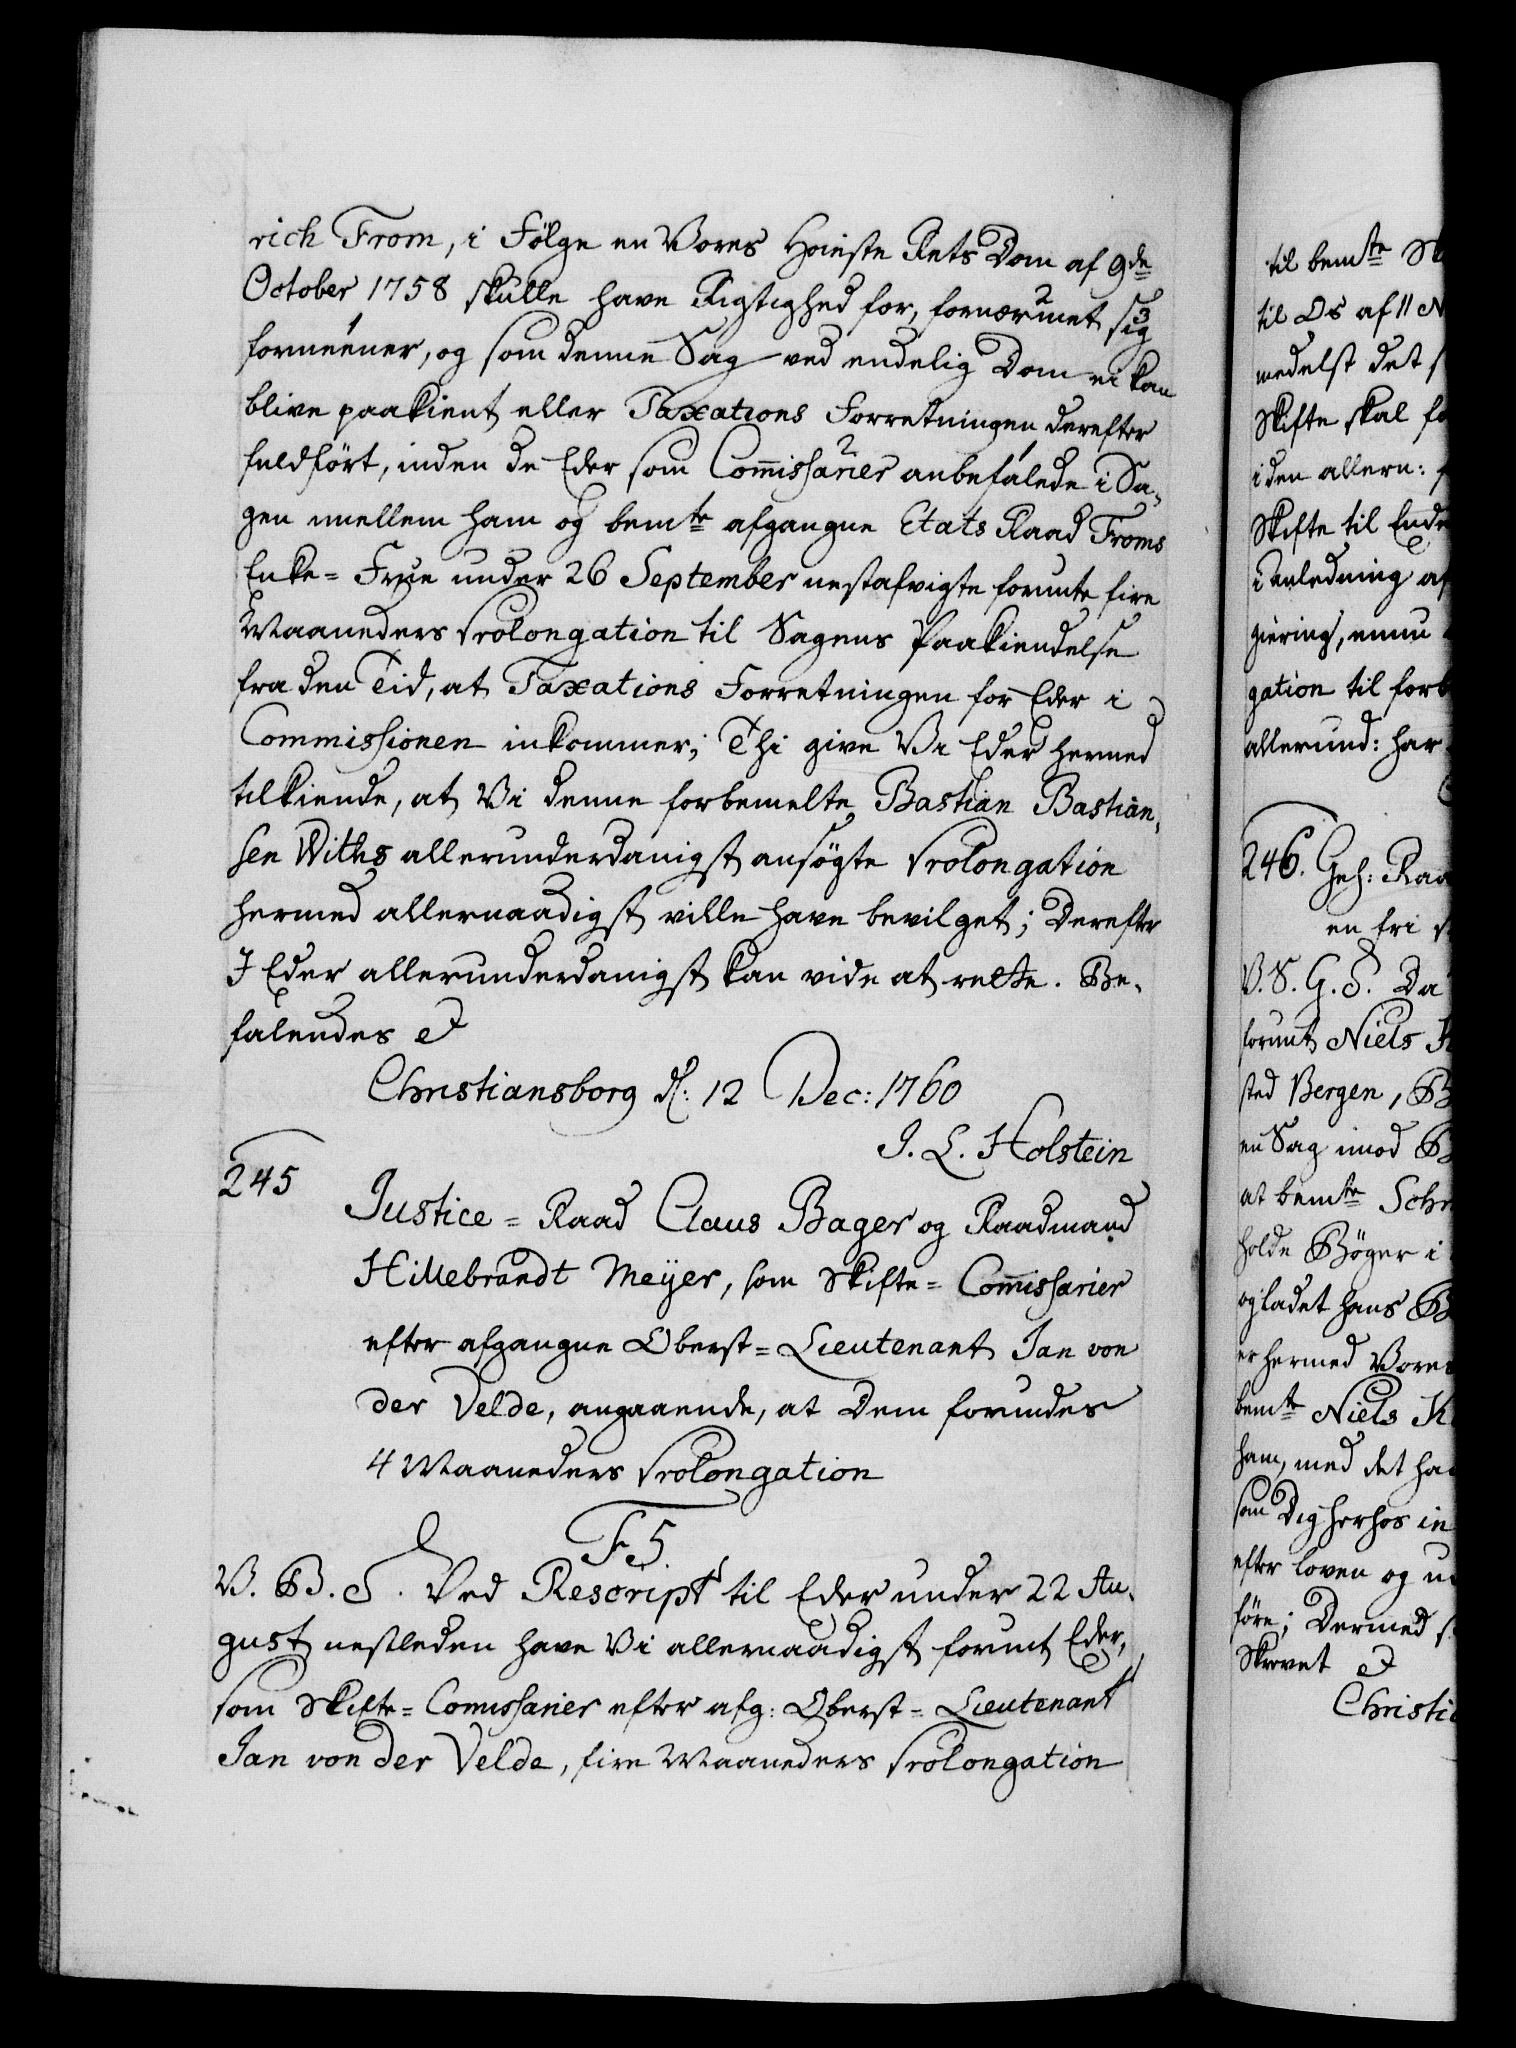 rich From, i Følge en Vores Høieste Rets Dom af 9de
October 1758 skulle have Rigtighed for, fornærmet sig
formeener, og som denne Sag ved endelig Dom ei kan
blive paakient eller Taxations Forretningen derefter
fuldført, inden de Eder som Commissarier anbefalede i Sa-
gen imellem ham og bemte afgangne Etats Raad Froms
Enke-Frue under 26 September nestafvigte forunte fire
Maaneders Prolongation til Sagens Paakiendelse
fra den Tid, at Taxations Forretningen for Eder i
Commissionen inkommer; Thi give Vi Eder hermed
tilkiende, at Vi denne forbemelte Bastian Bastian-
sen Withs allerunderdanigst ansøgte Prolongation
hermed allernaadigst ville have bevilget; Derefter
I Eder allerunderdanigst kan vide at rette. Be-
falendes &
Christiansborg d: 12 Dec: 1760
J. L. Holstein
245
Justice-Raad Claus Bager og Raadmand
Hillebrandt Meyer, som Skifte-Commissarier
efter afgangne Oberst-Lieutenant Jan von
der Velde, angaaende, at Dem forundes
4 Maaneders Prolongation
F5.
V. B. S. Ved Rescript til Eder under 22 Au-
gust nestleden have Vi allernaadigst forunt Eder,
som Skifte-Comissarier efter afg: Oberst-Lieutenant
Jan von der Velde, fire Maaneders Prolongation
til bemte
til Os af 11
medelst det
Skifte skal
i den allern:
Skifte til Ende
i Anledning af
giering, ennu
gation til
allerund: har
246. Geh:
en fri
V. S. G. S. Da
forunt Niels
sted Bergen,
en Sag imod
at bemte
holde Bøger i
og ladet hans
er hermed Vores
bemte Niels
ham, med det
som Dig herhos
efter loven og
føre; Dermed
Skrevet &